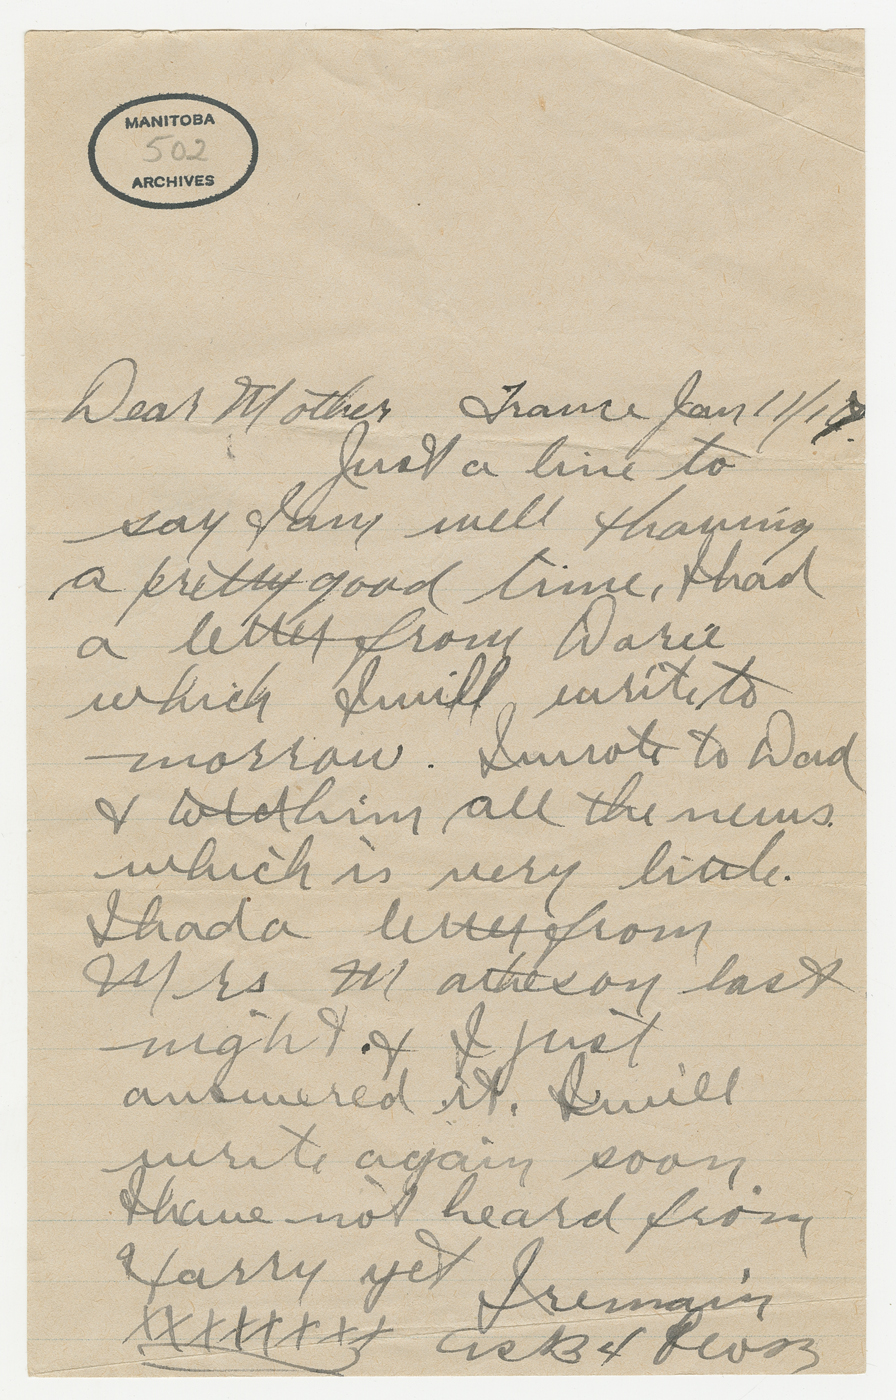 MANITOBA
502
ARCHIVES
Dear Mother France Jan 11/17.
Just a line to
say I am well & having
a pretty good time, I had
a letter from
which I will write to
morrow. I wrote to Dad
& told him all the news.
which is very little.
I had a letter from
Mrs Matheson last
night. & I just
answered it. I will
write again soon
I have not heard from
Harry yet I remain
xxxxxxxx as B4